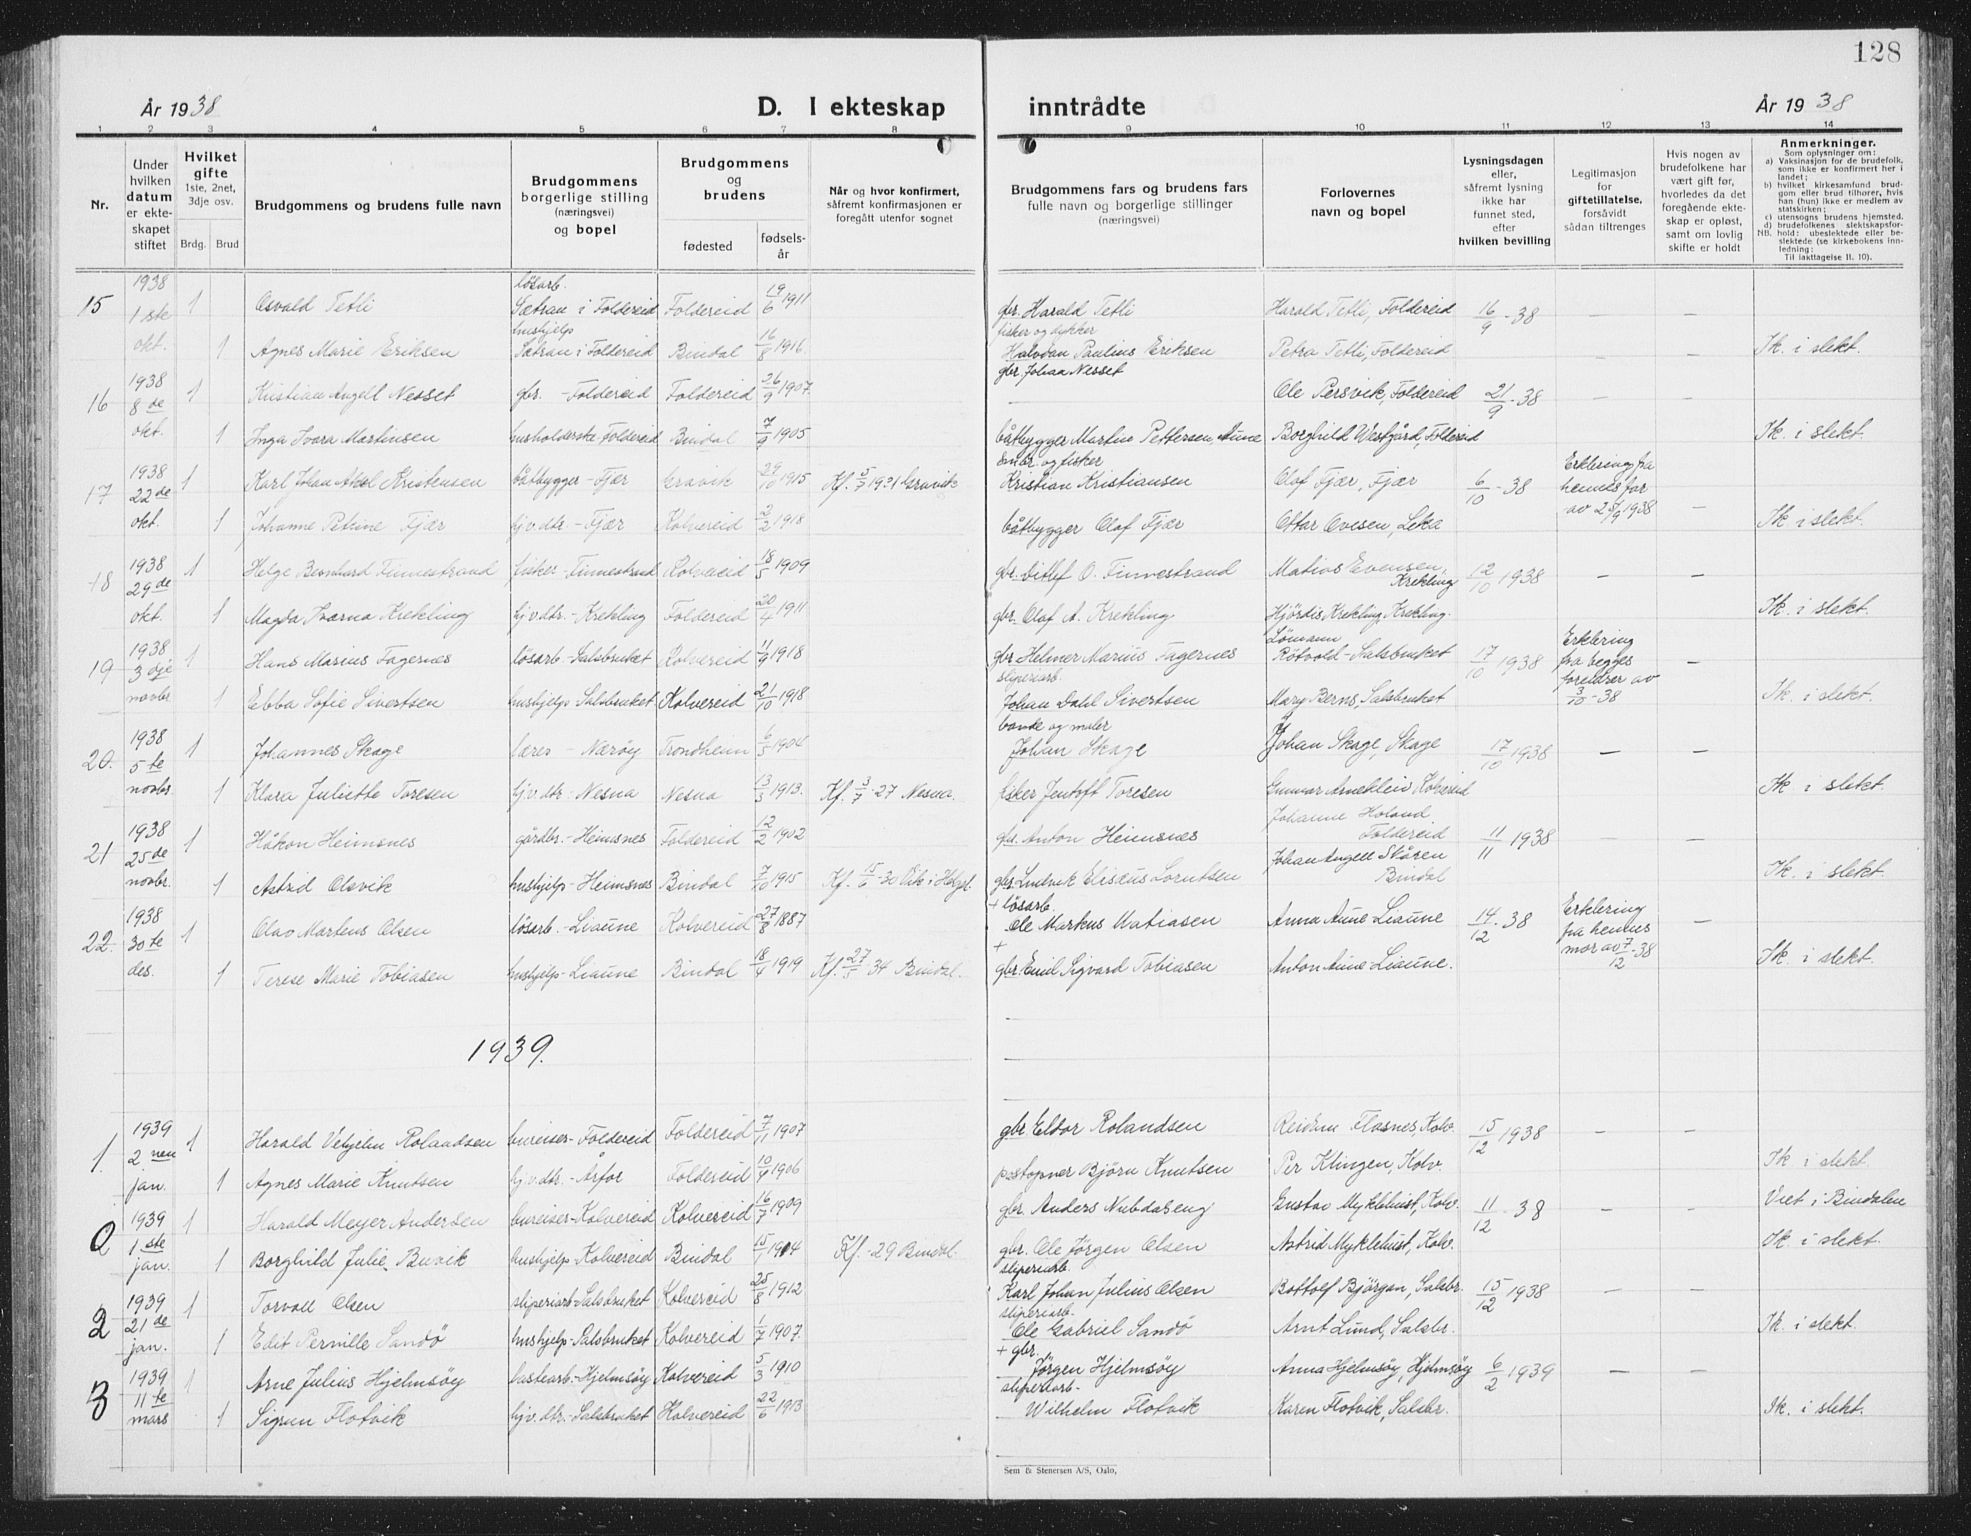 128
År 1938
D. I ekteskap inntrådte
År 1938
1 2 3 4 5 6 7 8 9 10 11 12 13 14
Nr.
Under hvilken datum er ekteskapet stiftet
Hvilket gifte
1ste, 2net, 3dje osv.
Brdg. Brud
Brudgommens og brudens fulle navn
Brudgommens borgerlige stilling (næringsvei) og bopel
Brudgommens og brudens
fødested
fødselsår
Når og hvor konfirmert, såfremt konfirmasjonen er foregått utenfor sognet
Brudgommens fars og brudens fars fulle navn og borgerlige stillinger (næringsvei)
Forlovernes navn og bopel
Lysningsdagen eller, såfremt lysning ikke har funnet sted, efter hvilken bevilling
Legitimasjon for giftetillatelse, forsåvidt sådan tiltrenges
Hvis nogen av brudefolkene har vært gift før, hvorledes da det foregående ekteskap er opløst, samt om lovlig skifte er holdt
Anmerkninger.
Som oplysninger om:
a) Vaksinasjon for de brudefolk, som ikke er konfirmert her i landet;
b) hvilket kirkesamfund brudgom eller brud tilhører, hvis han (hun) ikke er medlem av statskirken;
c) utensogns brudens hjemsted.
d) brudefolkenes slektskapsforhold: ubeslektede eller beslektede (se kirkebokens innledning;
NB. Til iakttagelse II. 10).
15 1938 1ste okt. 1 Osvald Tetli løsarb. Sætran i Foldereid Foldereid 19/6 1911 gbr. Harald Tetli Harald Tetli, Foldereid 16/9-38 — —
1 Agnes Marie Eriksen hushjelp Sætran i Foldereid Bindal 16/8 1916 fisker og dykker Halvdan Paulius Eriksen Petra Tetli, Foldereid Ik. i slekt.
16 1938 8de okt. 1 Kristian Angell Nesset gbr. - Foldereid Foldereid 26/9 1907 gbr. Johan Nesset Ole Persvik, Foldereid 21/9-38 — —
1 Inga Svara Martinsen husholderske Foldereid Bindal 7/9 1905 båtbygger Martin Pettersen Aune Borghild Westgård, Foldereid Ik. i slekt.
17 1938 22de okt. 1 Karl Johan Aksel Kristensen båtbygger - Fjær Gravik 29/10 1915 Kf. 5/7 1931 Gravik Småbr. og fisker Kristian Kristiansen Olaf Fjær, Fjær 6/10-38 Erklering fra hennes far av 25/9 1938 —
1 Johanne Petrine Fjær hjv. dtr - Fjær Kolvereid 2/2 1918 båtbygger Olaf Fjær Ottar Ovesen, Leka Ik. i slekt.
18 1938 29de okt. 1 Helge Bernhard Finnestrand fisker - Finnestrand Kolvereid 18/5 1909 gbr. Ditlef O. Finnestrand Matias Evensen, Krekling 12/10 1938 — —
1 Magda Svarna Krekling hjv. dtr. - Krekling Foldereid 20/4 1911 gbr. Olaf A. Krekling Hjördis Krekling, Krekling. Ik. i slekt.
19 1938 3dje novbr. 1 Hans Marius Fagernes løsarb - Salsbruket Kolvereid 11/9 1918 gbr. Helmer Marius Fagernes Lömann Rötvold - Salsbruket 17/10 1938 Erklering fra begges foreldrer av 3/10-38 —
1 Ebba Sofie Sivertsen hushjelp Salsbruket Kolvereid 21/10 1918 sliperiarb. Johan Dahl Sivertsen Mary Berns, Salsbruket Ik. i slekt.
20. 1938 5te novbr. 1 Johannes Skage lærer - Nærøy Trondheim 6/5 1904 bonde og maler Johan Skage Johan Skage, Skage 17/10 1938 — —
1 Klara Juliette Toresen hjv. dtr. Nesna Nesna 13/3 1913. Kf. 3/7-27 Nesna. fisker Jentoft Toresen Gunvor Arnekleiv Kolvereid Ik. i slekt.
21 1938 25de novbr. 1 Håkon Heimsnes gårdbr. - Heimsnes Foldereid 12/2 1902 gbr. Anton Heimsnes Johanne Holand Foldereid 11/11 1938 — —
1 Astrid Olsvik hushjelp - Heimsnes Bindal 7/10 1915 Kf. 15/6-30 Vik i Helgel. gbr. Ludvik Eliseus Lorntsen Johan Angell Skåren Bindal Ik. i slekt.
22. 1938 30te des. 1 Olav Martens Olsen løsarb. - Liaune Kolvereid 27/8 1887 + løsarb. Ole Markus Matiasen Anna Aune Liaune 14/12-38 Erklering fra hennes mor av 7/12-38 —
1 Terese Marie Tobiasen hushjelp - Liaune Bindal 18/4 1919 Kf. 27/5 34 Bindal. + gbr. Emil Sigvard Tobiasen Anton Aune Liaune. Ik. i slekt.
1939.
1. 1939 2nen jan. 1 Harald Vehjelm Rolandsen bureiser - Foldereid Foldereid 7/11 1907 gbr Eldor Rolandsen Reidun Flosnes, Kolv. 15/12 1938 — —
1 Agnes Marie Knutsen hjv. dtr. - Årfor Foldereid 10/4 1906 postopner Björn Knutsen Per Klingen, Kolv. Ik. i slekt.
0 1939 1ste jan. 1 Harald Meyer Andersen bureiser - Kolvereid Kolvereid 16/7 1909 gbr. Anders Nubdaseng Gustav Myklebust, Kolv. 11/12-38 — — Viet i Bindalen
1 Borghild Julie Buvik hushjelp - Kolvereid Bindal 15/1 1914 Kf. -29 Bindal. gbr. Ole Jørgen Olsen Astrid Myklebust, Kolv. Ik. i slekt.
2 1939 21de jan. 1 Torvall Olsen sliperiarb - Salsbruket Kolvereid 25/8 1912 sliperiarb. Karl Johan Julius Olsen Bottolf Bjørgan, Salsbr. 15/12 1938 — —
1 Edit Pernille Sandö hushjelp - Salsbruket Kolvereid 1/7 1907. sliperiarb. Ole Gabriel Sandö Arnt Lund, Salsbr. Ik. i slekt.
3 1939 11te mars 1 Arne Julius Hjelmsöy - Hjelmsöy Kolvereid 5/3 1910 + gbr. Jørgen Hjelmsöy Anna Hjelmsöy, Hjelmsöy 6/2 1939 — —
1 Sigrun Flotvik hjv. dtr. - Salsbruket Kolvereid 22/6 1913 sliperiarb. Wilhelm Flotvik Karen Flotvik, Salsbr. Ik. i slekt.
Sem & Stenersen A/S, Oslo.